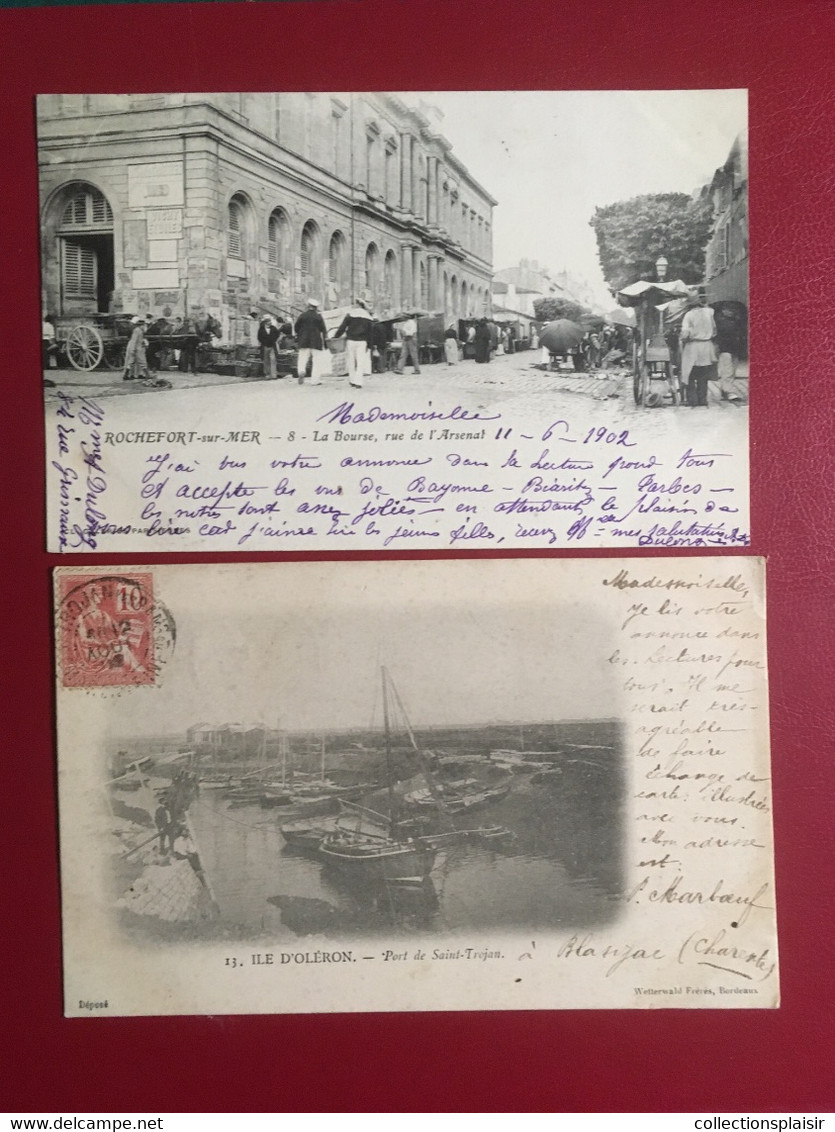 Mademoiselle
ROCHEFORT-sur-MER — 8 - La Bourse, rue de l'Arsenal 11 - 6 - 1902
J'ai vus votre annonce dans la Lecture pour Tous
et accepte les vus de Bayonne - Biaritz - Tarbes -
les notres sont assez jolies - en attendant le plaisir de
vous lire car j'aime lire les jeunes filles, recevez mes salutations
84 rue
Mademoiselle,
Je lis votre
annonce dans
les Lectures pour
tous. Il me
serait très-
agréable
de faire
échange de
carte: illustrées
avec vous.
Mon adresse
est:
P. Marbœuf
à Blasizac (Charente)
10
13. ILE D'OLÉRON. — Port de Saint-Trojan.
Déposé
Wetterwald Frères, Bordeaux
collectionsplaisir